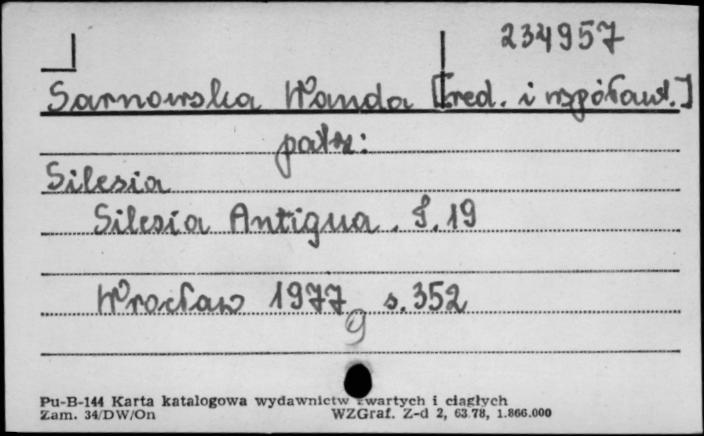 234957
Sarnowska Wanda [red. i współaut.]
patrz:
Silesia
Silesia Antiqua. T. 19
Wrocław 1977 s. 352
9
Pu-B-144 Karta katalogowa wydawnictw zwartych i ciągłych
Zam. 34/DW/On WZGraf. Z-d 2, 63.78, 1.866.000